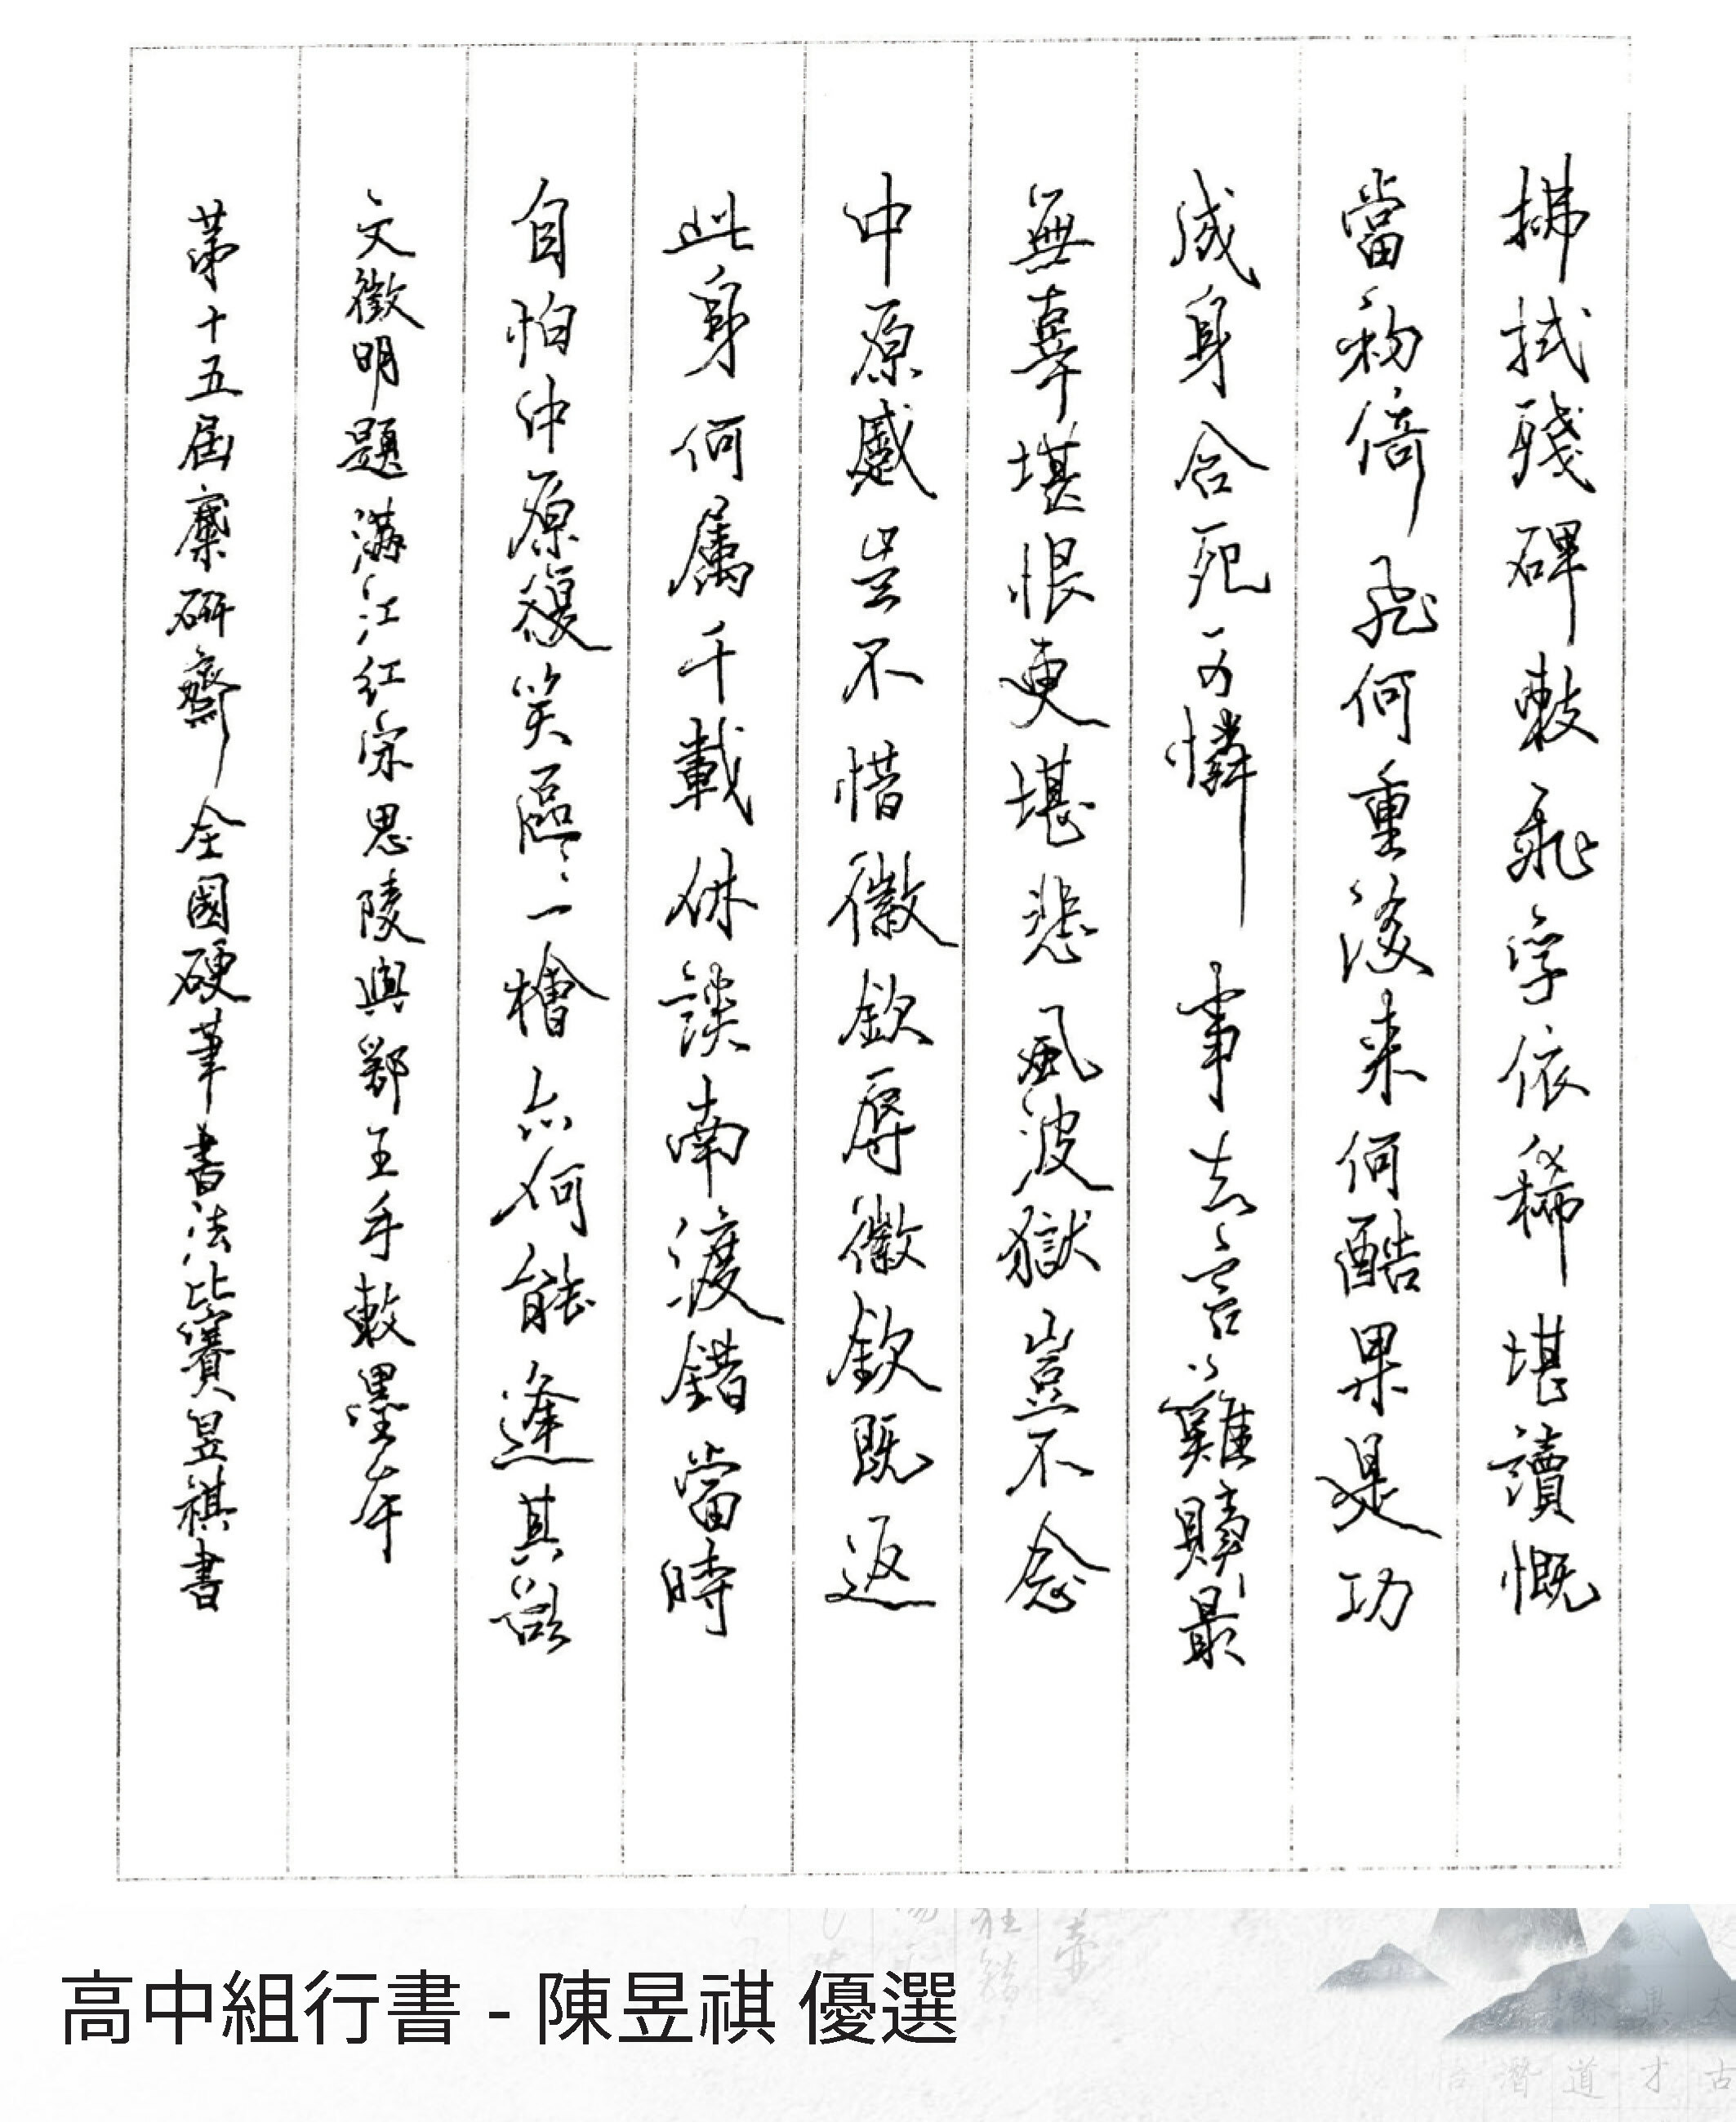 拂拭殘碑敕飛字依稀堪讀慨
當初倚飛何重後来何酷果是功
成身合死可憐事去言難贖最
無辜堪恨更堪悲風波獄豈不念
中原蹙豈不惜徽欽辱徽欽既返
此身何屬千載休談南渡錯當時
自怕中原復笑區〻一檜亦何能逢其欲
文徵明題滿江紅宋思陵與鄂王手敕墨本
第十五屆麋研齋全國硬筆書法比賽昱祺書
高中組行書 - 陳昱祺 優選